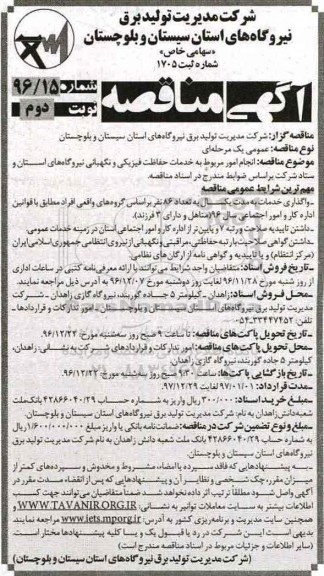 شرکت مدیریت تولید برق
نیروگاه‌های استان سیستان و بلوچستان
«سهامی خاص»
شماره ثبت ۱۷۰۵
آگهی مناقصه
شماره ۹۶/۱۵
نوبت دوم
مناقصه گزار: شرکت مدیریت تولید برق نیروگاه‌های استان سیستان و بلوچستان
نوع مناقصه: عمومی یک مرحله‌ای
موضوع مناقصه: انجام امور مربوط به خدمات حفاظت فیزیکی و نگهبانی نیروگاه‌های استان و
ستاد شرکت براساس ضوابط مندرج در اسناد مناقصه.
مهم‌ترین شرایط عمومی مناقصه
ـ واگذاری خدمات به مدت یکسال به تعداد ۸۶ نفر براساس گروه‌های واقعی افراد مطابق با قوانین
اداره کار و امور اجتماعی سال ۹۶ (متاهل و دارای ۲ فرزند).
ـ داشتن تاییدیه صلاحیت و رتبه ۷ و پایین‌تر از اداره کار و امور اجتماعی استان در زمینه خدمات عمومی
ـ داشتن گواهی صلاحیت با رتبه حفاظتی، مراقبتی و نگهبانی از نیروی انتظامی جمهوری اسلامی ایران
(مرکز انتظام) و یا تاییدیه و گواهی نامه از ارگان‌های نظامی.
ـ تاریخ فروش اسناد: متقاضیان واجد شرایط می‌توانند با ارائه معرفی‌نامه کتبی در ساعات اداری
از روز شنبه مورخ ۹۶/۱۱/۲۸ لغایت روز دوشنبه مورخ ۹۶/۱۲/۰۷ به آدرس ذیل مراجعه نمایند.
محل فروش اسناد: زاهدان ـ کیلومتر ۵ جاده گوربند، نیروگاه گازی زاهدان ـ شرکت
مدیریت تولید برق نیروگاه‌های استان سیستان و بلوچستان ـ امور تدارکات و قراردادها ـ
تلفن: ۳۳۴۴۷۴۵۲-۰۵۴
ـ تاریخ تحویل پاکت‌های مناقصه: تا ساعت ۹ صبح روز سه‌شنبه مورخ ۹۶/۱۲/۲۲
ـ محل تحویل پاکت‌های مناقصه: امور تدارکات و قراردادهای شرکت به نشانی: زاهدان،
کیلومتر ۵ جاده گوربند، نیروگاه گازی زاهدان.
ـ تاریخ بازگشایی پاکت‌ها: ساعت ۹:۳۰ صبح روز سه‌شنبه مورخ ۹۶/۱۲/۲۲
ـ مدت قرارداد: ۹۷/۰۱/۰۱ لغایت ۹۷/۱۲/۲۹
ـ مبلغ خرید اسناد: ۳۰۰/۰۰۰ ریال واریز به شماره حساب ۴۲۸۶۶۰۴۰/۲۹ بانک ملت
شعبه دانش زاهدان به نام: شرکت مدیریت تولید برق نیروگاه‌های استان سیستان و بلوچستان.
ـ مبلغ و نوع تضمین شرکت در مناقصه: ضمانت‌نامه بانکی یا واریز مبلغ ۱/۶۰۰/۰۰۰/۰۰۰ ریال
به شماره حساب ۴۲۸۶۶۰۴۰/۲۹ بانک ملت شعبه دانش زاهدان به نام شرکت مدیریت تولید برق
نیروگاه‌های استان سیستان و بلوچستان.
ـ به پیشنهادهایی که فاقد سپرده یا امضاء، مشروط و مخدوش و سپرده‌های کمتر از
میزان مقرر، چک شخصی و نظایر آن و پیشنهادهایی که پس از انقضاء مدت مقرر در
آگهی واصل شود مطلقاً ترتیب اثر داده نخواهد شد. ضمناً متقاضیان می‌توانند جهت کسب
اطلاعات بیشتر به سایت معاملات توانیر به نشانی: WWW.TAVANIR.ORG.IR و
همچنین سایت مدیریت و برنامه‌ریزی کشور به آدرس: www.iets.mporg.ir مراجعه نمایند.
بدیهی است این شرکت در رد یا قبول یک و یا کلیه پیشنهادها مختار است
(سایر اطلاعات و جزئیات مربوط در اسناد مناقصه مندرج است)
(شرکت مدیریت تولید برق نیروگاه‌های استان سیستان و بلوچستان)